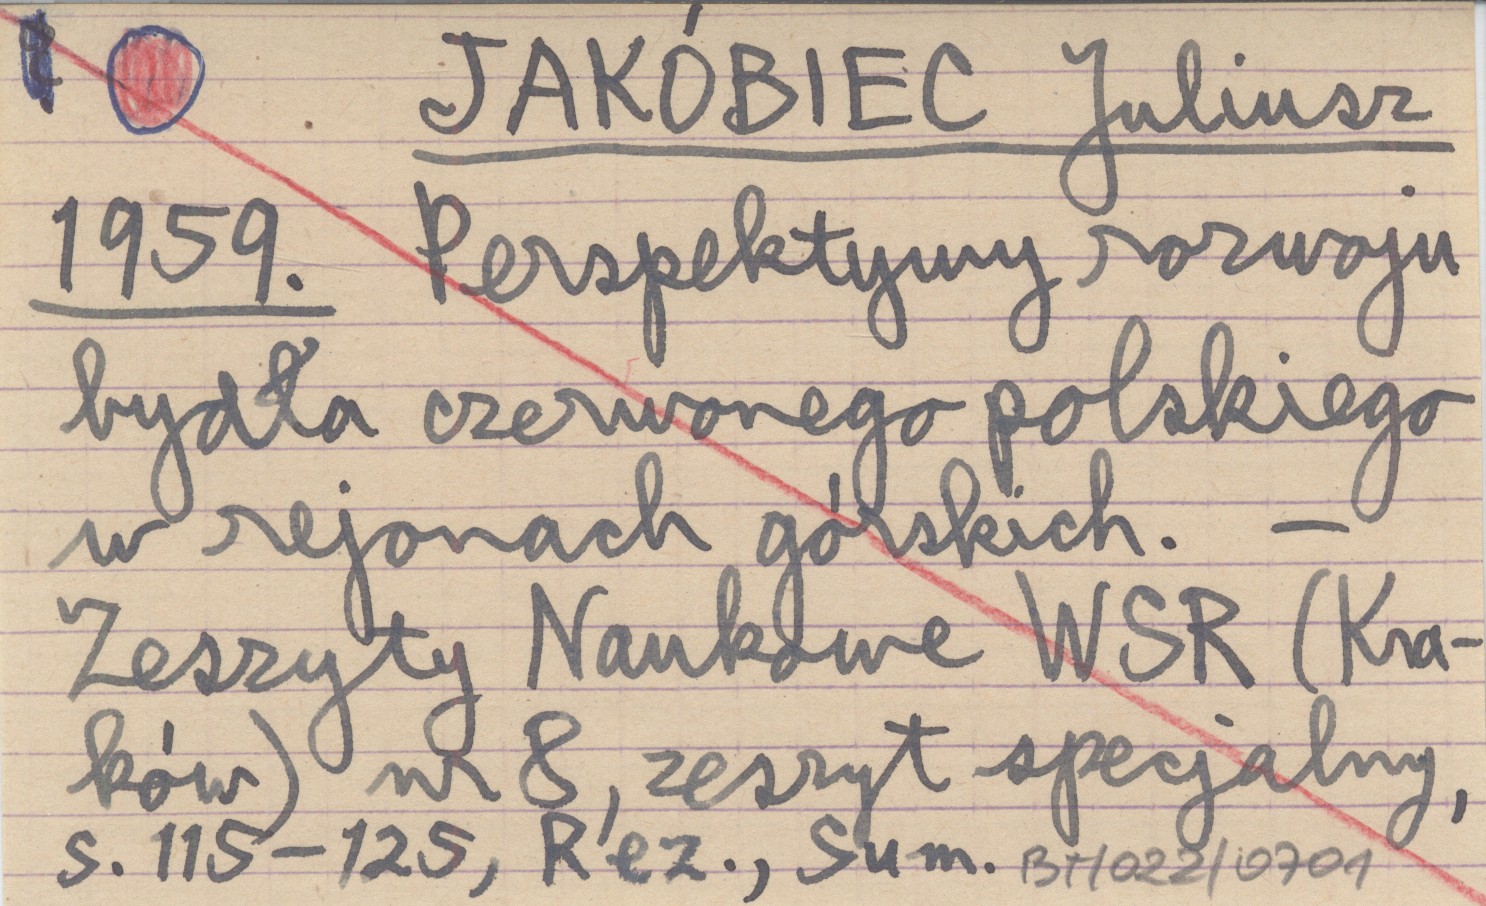 JAKÓBIEC Juliusz
1959. Perspektywy rozwoju
bydła czerwonego polskiego
w rejonach górskich. —
Zeszyty Naukowe WSR (Kra-
ków) nr 8, zeszyt specjalny,
s. 115-125, Rez., Sum.